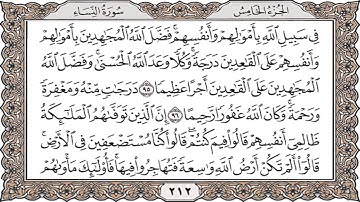 الجزء الخامس
سورة النساء
فِي سَبِيلِ اللَّهِ بِأَمْوَالِهِمْ وَأَنفُسِهِمْ فَضَّلَ اللَّهُ الْمُجَاهِدِينَ بِأَمْوَالِهِمْ
وَأَنفُسِهِمْ عَلَى الْقَاعِدِينَ دَرَجَةً وَكُلًّا وَعَدَ اللَّهُ الْحُسْنَى وَفَضَّلَ اللَّهُ
الْمُجَاهِدِينَ عَلَى الْقَاعِدِينَ أَجْرًا عَظِيمًا ٩٥ دَرَجَاتٍ مِّنْهُ وَمَغْفِرَةً
وَرَحْمَةً وَكَانَ اللَّهُ غَفُورًا رَّحِيمًا ٩٦ إِنَّ الَّذِينَ تَوَفَّاهُمُ الْمَلَائِكَةُ
ظَالِمِي أَنفُسِهِمْ قَالُوا فِيمَ كُنتُمْ قَالُوا كُنَّا مُسْتَضْعَفِينَ فِي الْأَرْضِ
قَالُوا أَلَمْ تَكُنْ أَرْضُ اللَّهِ وَاسِعَةً فَتُهَاجِرُوا فِيهَا فَأُولَئِكَ مَأْوَاهُمْ
٢١٢